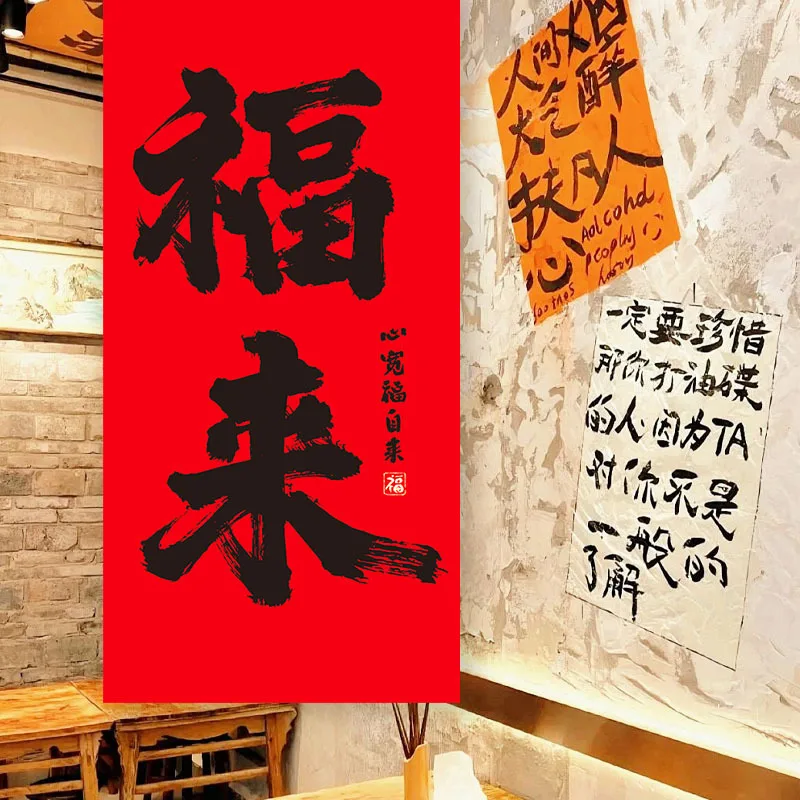 福
来
心宽福自来
福
人间烟
火气醉
扶凡人
心
Aolcohd
peophy
一定要珍惜
那你打油碟
的人因为TA
对你不是
一般的
了解